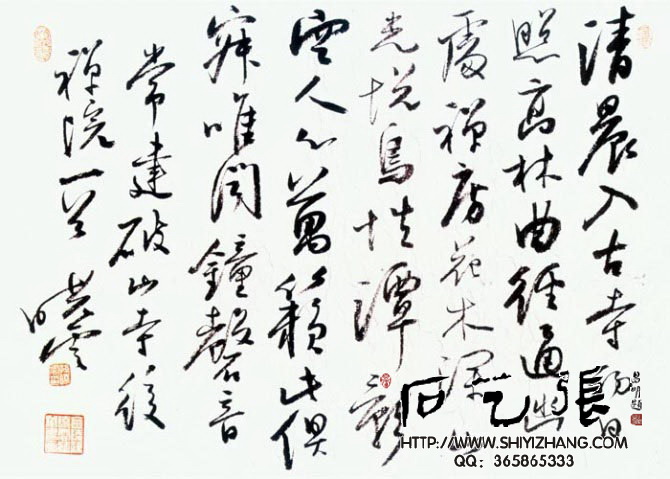 清晨入古寺初日
照高林曲徑通幽
處禪房花木深山
光悅鳥性潭影
空人心萬籟此俱
寂唯聞鐘磬音
常建破山寺後
禪院一首
石艺張
HTTP://WWW.SHIYIZHANG.COM
QQ：365865333